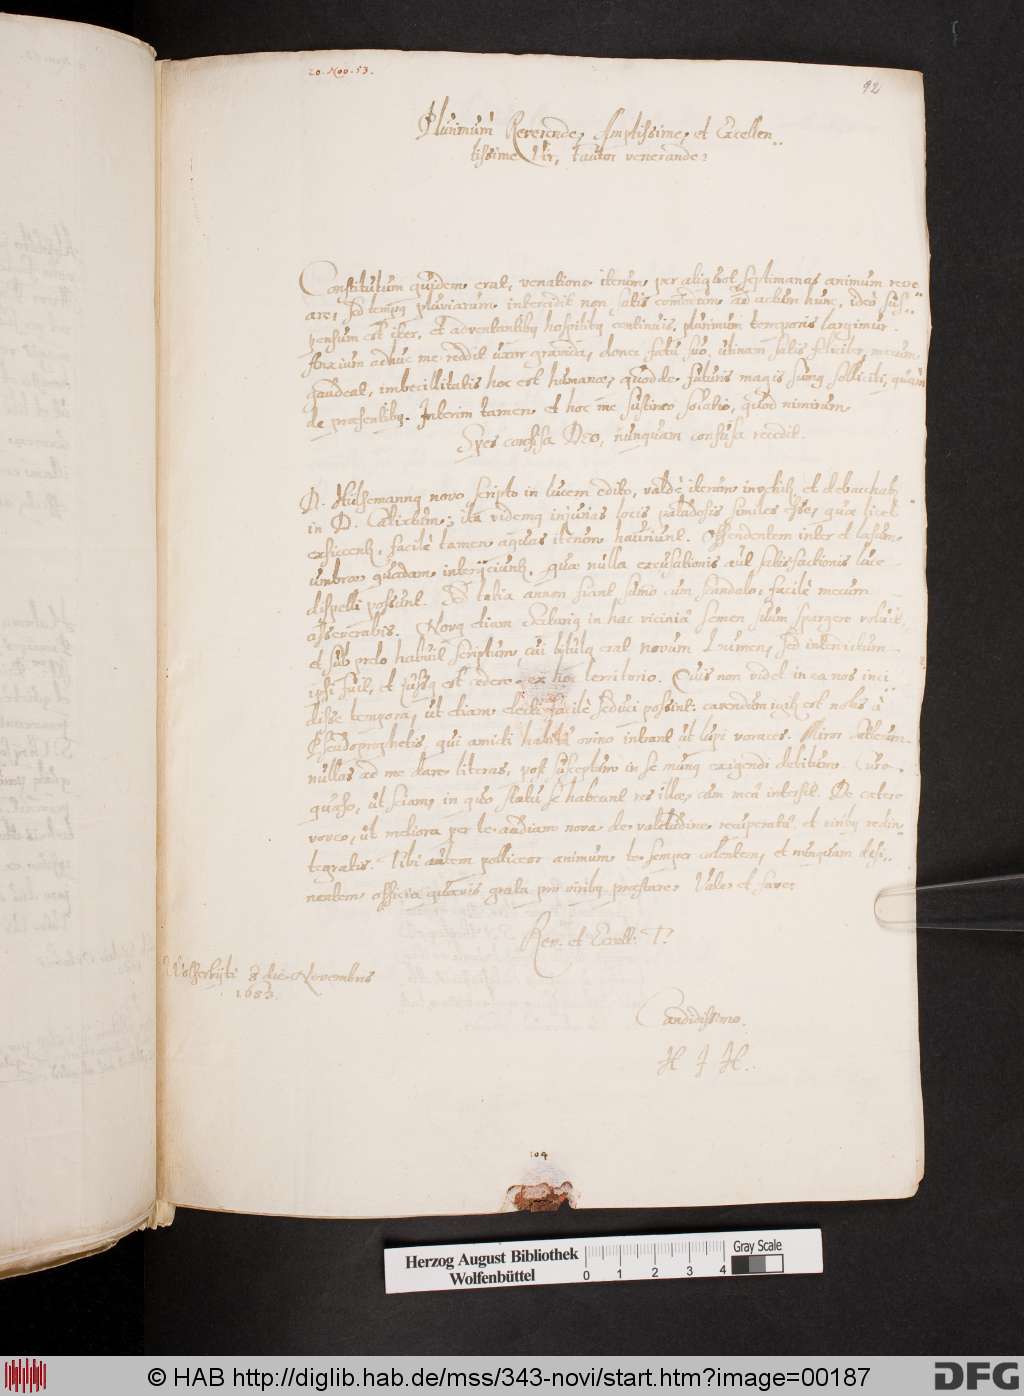 20. Nov. 53.
92
Plurimùm Reverende, Amplissime, et Excellen
tissime Vir, fautor venerande:
Constitutum quidem erat, venatione iterum per aliquot septimanas animum recre
are, sed tempus pluviarum intercedit non satis ad actum hunc, ideò sus
pensum est iter, et adventantibus hospitibus continuis, plurimum temporis largimur.
Anxium adhuc me reddit uxor gravida, donec fœtu suo, utinam satis feliciter, mecum
gaudeat, imbecillitatis hoc est humanæ, quòd de futuris magis simus solliciti, quàm
de præsentibus. Interim tamen et hoc me sustineo solatio, quod nimirum
Spes confisa Deo, nunquam confusa recedit.
D. Hülsemannus novo scripto in lucem edito, valdè iterum invehitur et debacchatur
in D. Calixtum; ita videmus injurias locis paludosis similes esse, quæ licet
exsiccentur, facilè tamen aquas iterum hauriunt. Offendentem inter et læsum
umbræ quædam interjiciuntur, quæ nulla excusationis aut satisfactionis luce
dispelli possunt. Et talia annon fiant summo cum scandalo, facilè mecum
asseverabis. Novus etiam Sectarius in hac vicinia semen suum spargere voluit,
et sub prelo habuit scriptum, cui titulus erat novum Lumen, sed interdictum
ipsi fuit, et jussus est cedere ex hoc territorio. Quis non videt in ea nos inci
disse tempora, ut etiam electi facilè seduci possint: cavendum igitur est nobis à
Pseudoprophetis, qui amicti habitu ovino intrant ut lupi voraces. Miror
nullas ad me dare literas, post susceptum in se munus exigendi debitum. Curo
quæso, ut sciam, in quo statu se habeant res illæ, cum meâ intersit. De cætero
voveo, ut meliora per te audiam nova de valetudine recuperatâ, et viribus redin
tegratis. Tibi autem polliceor animum te semper colentem, et nunquam desi
nentem officia quævis grata pro viribus præstare. Vale et fave:
Rev. et Excell. T.
Wolferbyti 8 die Novembris
1653.
Candidissimo.
H J H.
104
Herzog August Bibliothek
Wolfenbüttel
0 1 2 3 4
Gray Scale
© HAB http://diglib.hab.de/mss/343-novi/start.htm?image=00187
DFG